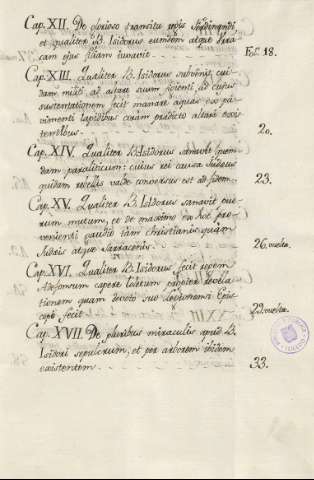 Cap. XII. De glorioso transitu regis Ferdinandi
et qualiter B. Isidorus eumdem atque
ejus filiam iuvavit. Fol. 18.
Cap. XIII. Qualiter B. Isidorus subvenit cui
dam militi ad altare suum sitienti, ad cujus
sustentationem fecit manare aquas ex pa
vimenti lapidibus coram predicto altari exis
tentibus. 20.
Cap. XIV. Qualiter B. Isidorus sanavit quem
dam paraliticum: cuius rei causa Judeus
quidam rebellis valde conversus est ad fidem. 23.
Cap. XV. Qualiter B. Isidorus sanavit pue
rum mutum, et de maximo ex hoc pro
venienti gaudio tam christianis quam
Judeis atque Sarracenis. 26. vuelta.
Cap. XVI. Qualiter B. Isidorus fecit regem
Adefonsum capere propter revela
tionem quam devoto suo Legionensi Epis
copo fecit. 29. vuelta.
Cap. XVII. De pluribus miraculis apud B.
Isidori sepulcrum, et per arborem ibidem
existentem. 33.